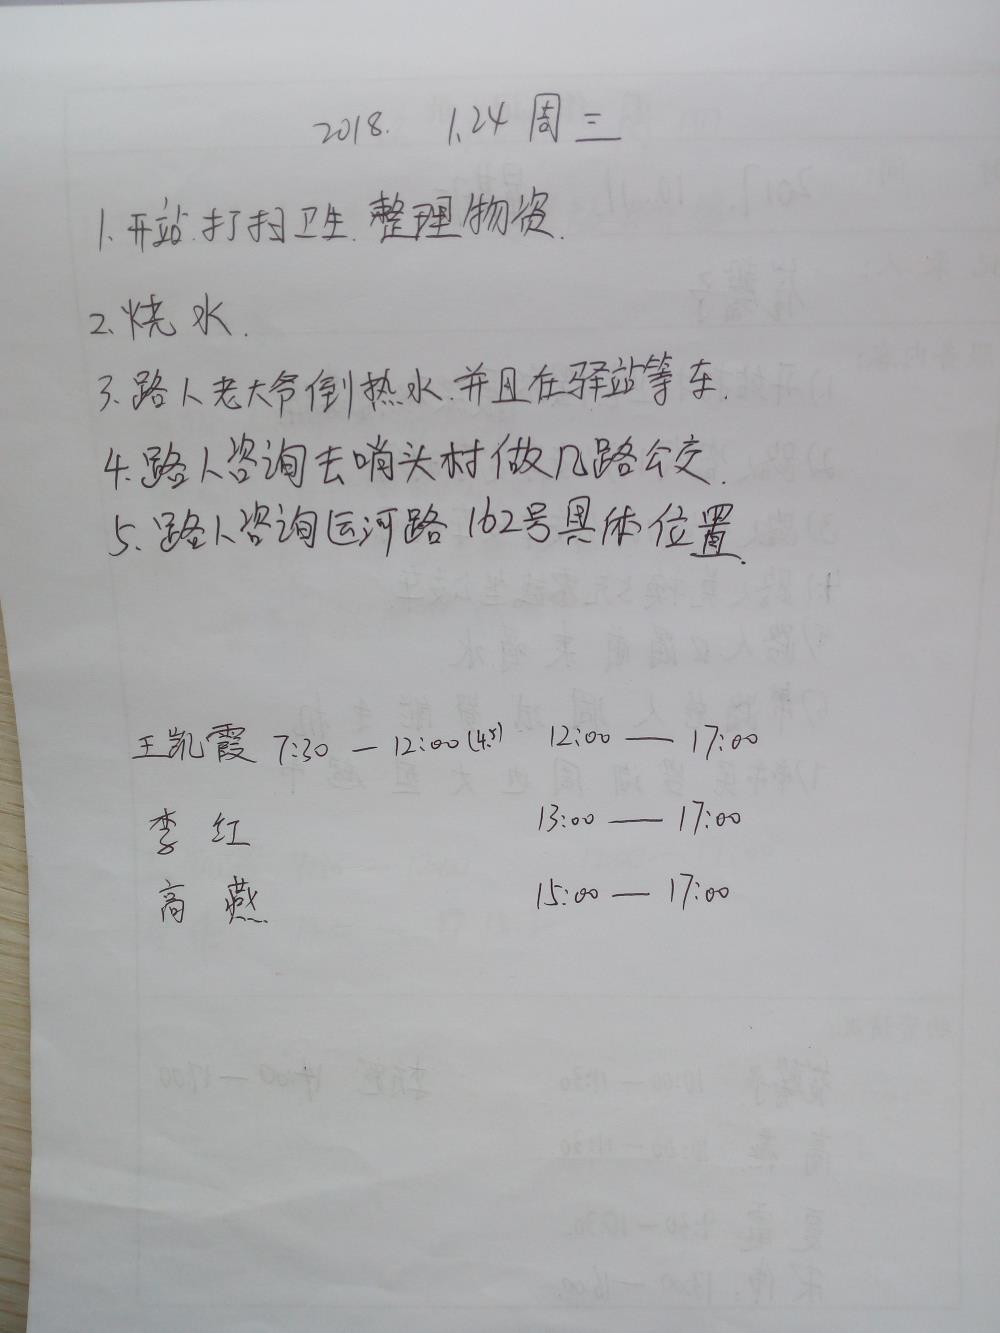 2018. 1.24 周三
1. 开站.打扫卫生.整理物资.
2. 烧水.
3. 路人老大爷倒热水.并且在驿站等车.
4. 路人咨询去哨头村做几路公交.
5. 路人咨询运河路162号具体位置.
王凯霞 7:30 — 12:00 (4.5) 12:00 — 17:00
李红 13:00 — 17:00
高燕 15:00 — 17:00